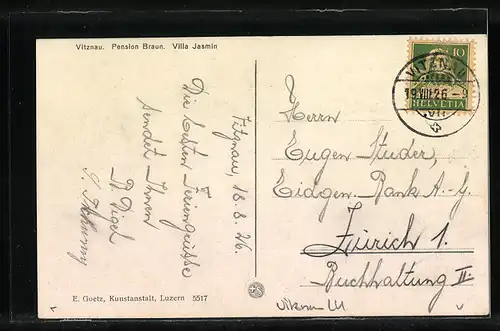 Vitznau. Pension Braun. Villa Jasmin
Vitznau, 18.8.26.
Die besten Feriengrüsse
sendet Ihnen
P. Vigel
10
VITZNAU
19.VIII.26.-9
VII
HELVETIA
Herrn
Eugen Studer,
Eidgen. Bank A.-G.
Zürich 1.
Buchhaltung II.
E. Goetz, Kunstanstalt, Luzern 5517